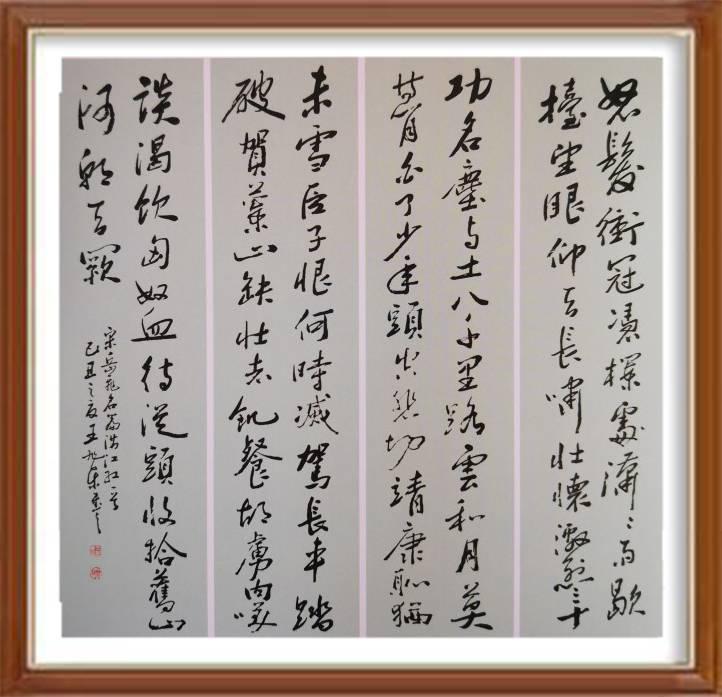 怒髮衝冠憑欄處瀟〻雨歇
擡望眼仰天長嘯壮懷激烈三十
功名塵与土八千里路雲和月莫
等閒白了少年頭空悲切靖康恥猶
未雪臣子恨何時滅駕長車踏
破賀蘭山缺壮志飢餐胡虜肉笑
談渴飲匈奴血待從頭收拾舊山
河朝天闕
宋岳飛名篇滿江紅一首
己丑之夏王旭东書